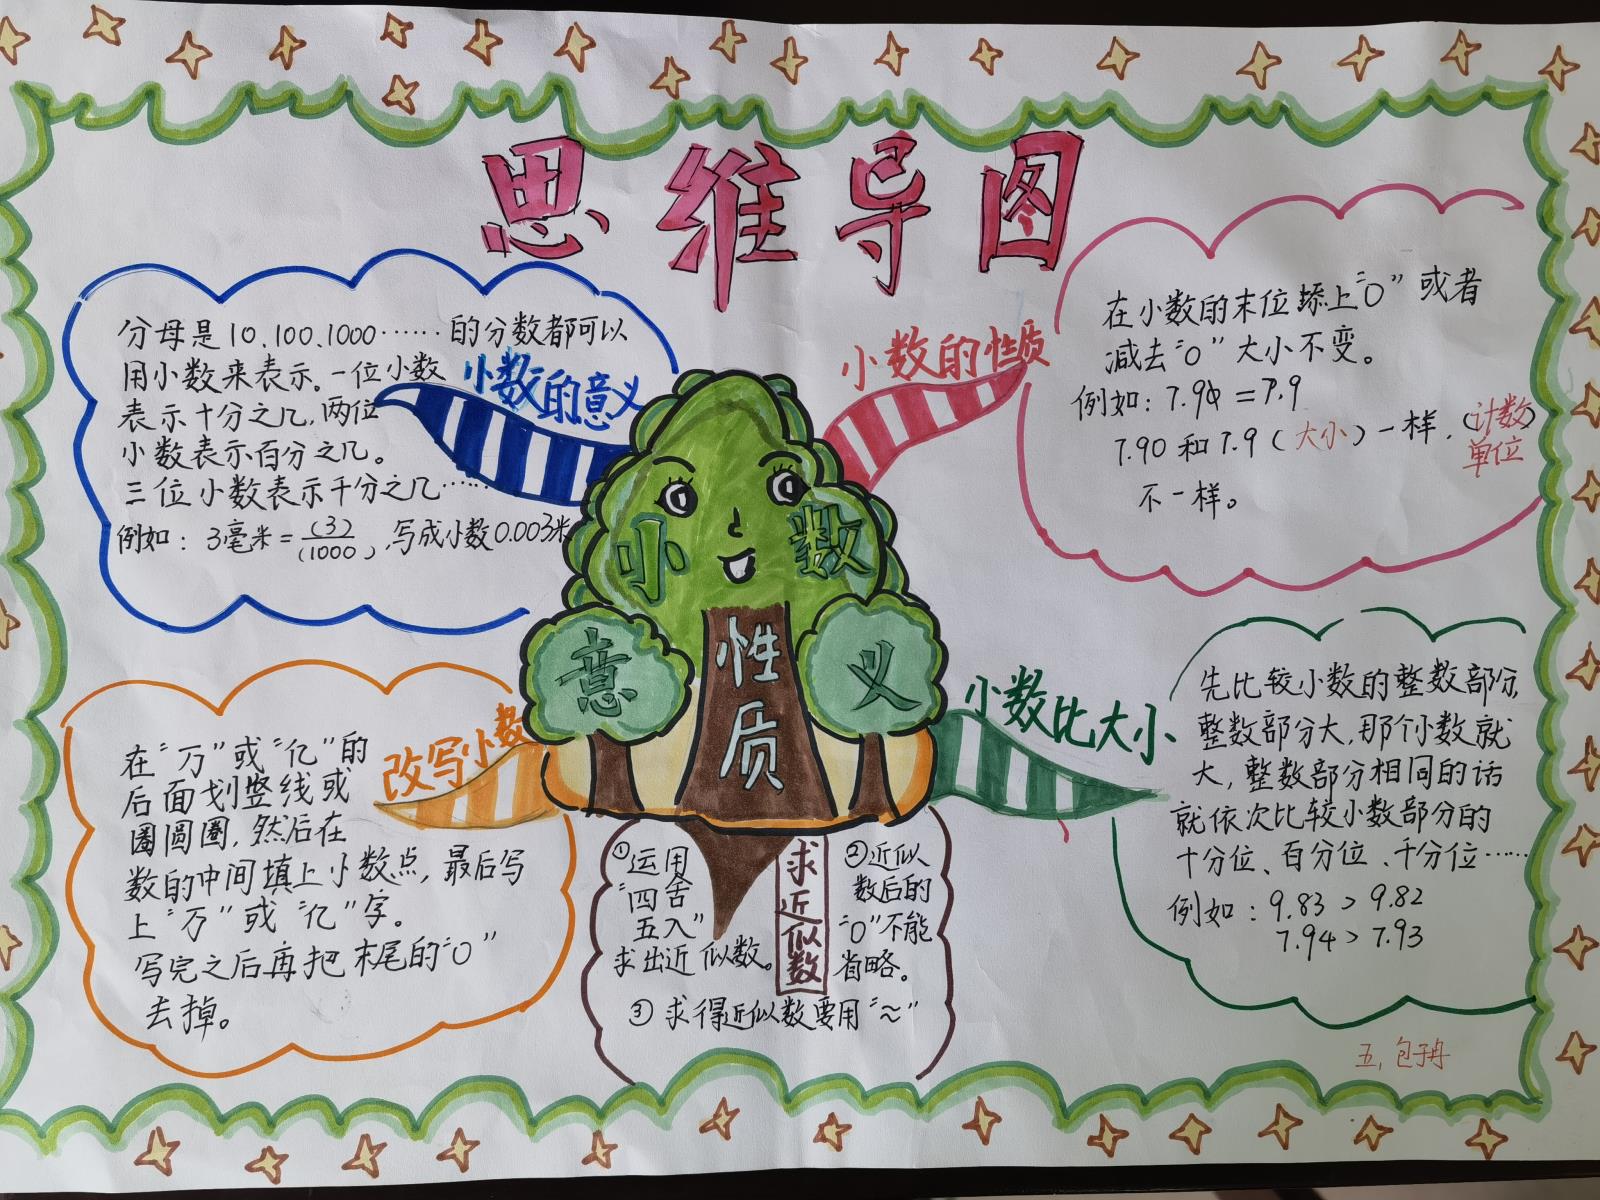 思维导图
小数的意义
分母是10、100、1000……的分数都可以
用小数来表示。一位小数
表示十分之几,两位
小数表示百分之几。
三位小数表示千分之几……
例如：3毫米=(3)/(1000),写成小数0.003米
小数的性质
在小数的末位添上“0”或者
减去“0”大小不变。
例如：7.90=7.9
7.90和7.9(大小)一样,(计数
单位)
不一样。
小数
意义
性质
改写小数
在“万”或“亿”的
后面划竖线或
圈圆圈,然后在
数的中间填上小数点,最后写
上“万”或“亿”字。
写完之后再把末尾的“0”
去掉。
求近似数
①运用
“四舍
五入”
求出近似数。
②近似
数后的
“0”不能
省略。
③求得近似数要用“≈”
小数比大小
先比较小数的整数部分,
整数部分大,那个小数就
大,整数部分相同的话
就依次比较小数部分的
十分位、百分位、千分位……
例如：9.83>9.82
7.94>7.93
五,包子冉